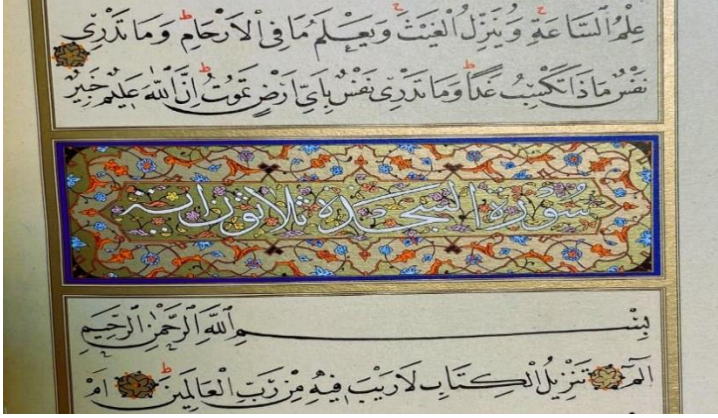 عِلْمُ السَّاعَةِ وَيُنَزِّلُ الْغَيْثَ وَيَعْلَمُ مَا فِى الْاَرْحَامِ ط وَمَا تَدْرِى
نَفْسٌ مَاذَا تَكْسِبُ غَدًا ط وَمَا تَدْرِى نَفْسٌ بِاَىِّ اَرْضٍ تَمُوتُ ط اِنَّ اللّٰهَ عَلِيمٌ خَبِيرٌ
سُورَةُ السَّجْدَةِ ثَلَاثُونَ اٰيَة
بِسْمِ اللّٰهِ الرَّحْمٰنِ الرَّحِيمِ
الٓمٓ تَنْزِيلُ الْكِتَابِ لَا رَيْبَ فِيهِ مِنْ رَبِّ الْعَالَمِينَ ط اَمْ